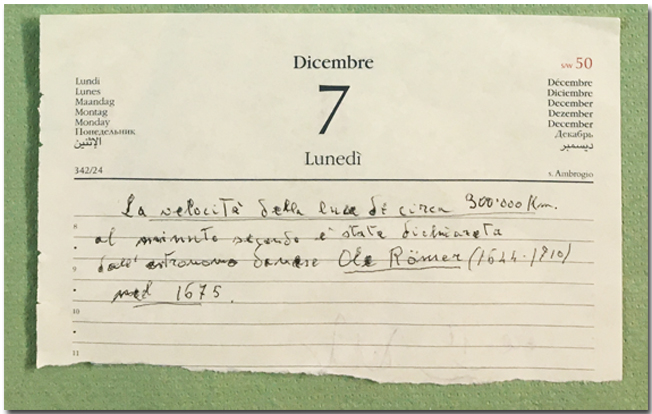 Dicembre
7
Lunedì
Lundi
Lunes
Maandag
Montag
Monday
Понедельник
الإثنين
342/24
s/w 50
Décembre
Diciembre
December
Dezember
December
Декабрь
ديسمبر
s. Ambrogio
La velocità della luce di circa 300'000 Km.
8
al minuto secondo è stata dichiarata
9
dall'astronomo danese Ole Römer (1644-1710)
nel 1675.
10
11